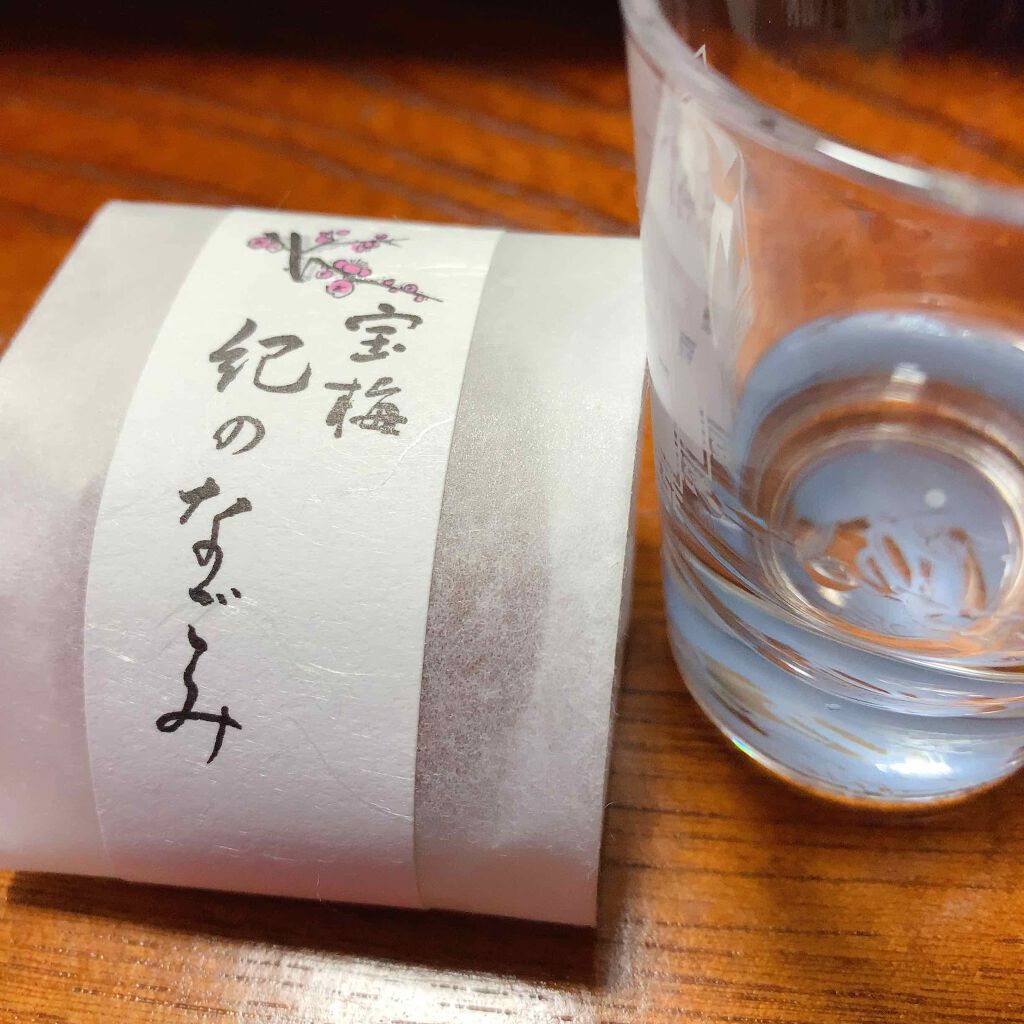 宝梅
紀のなごみ